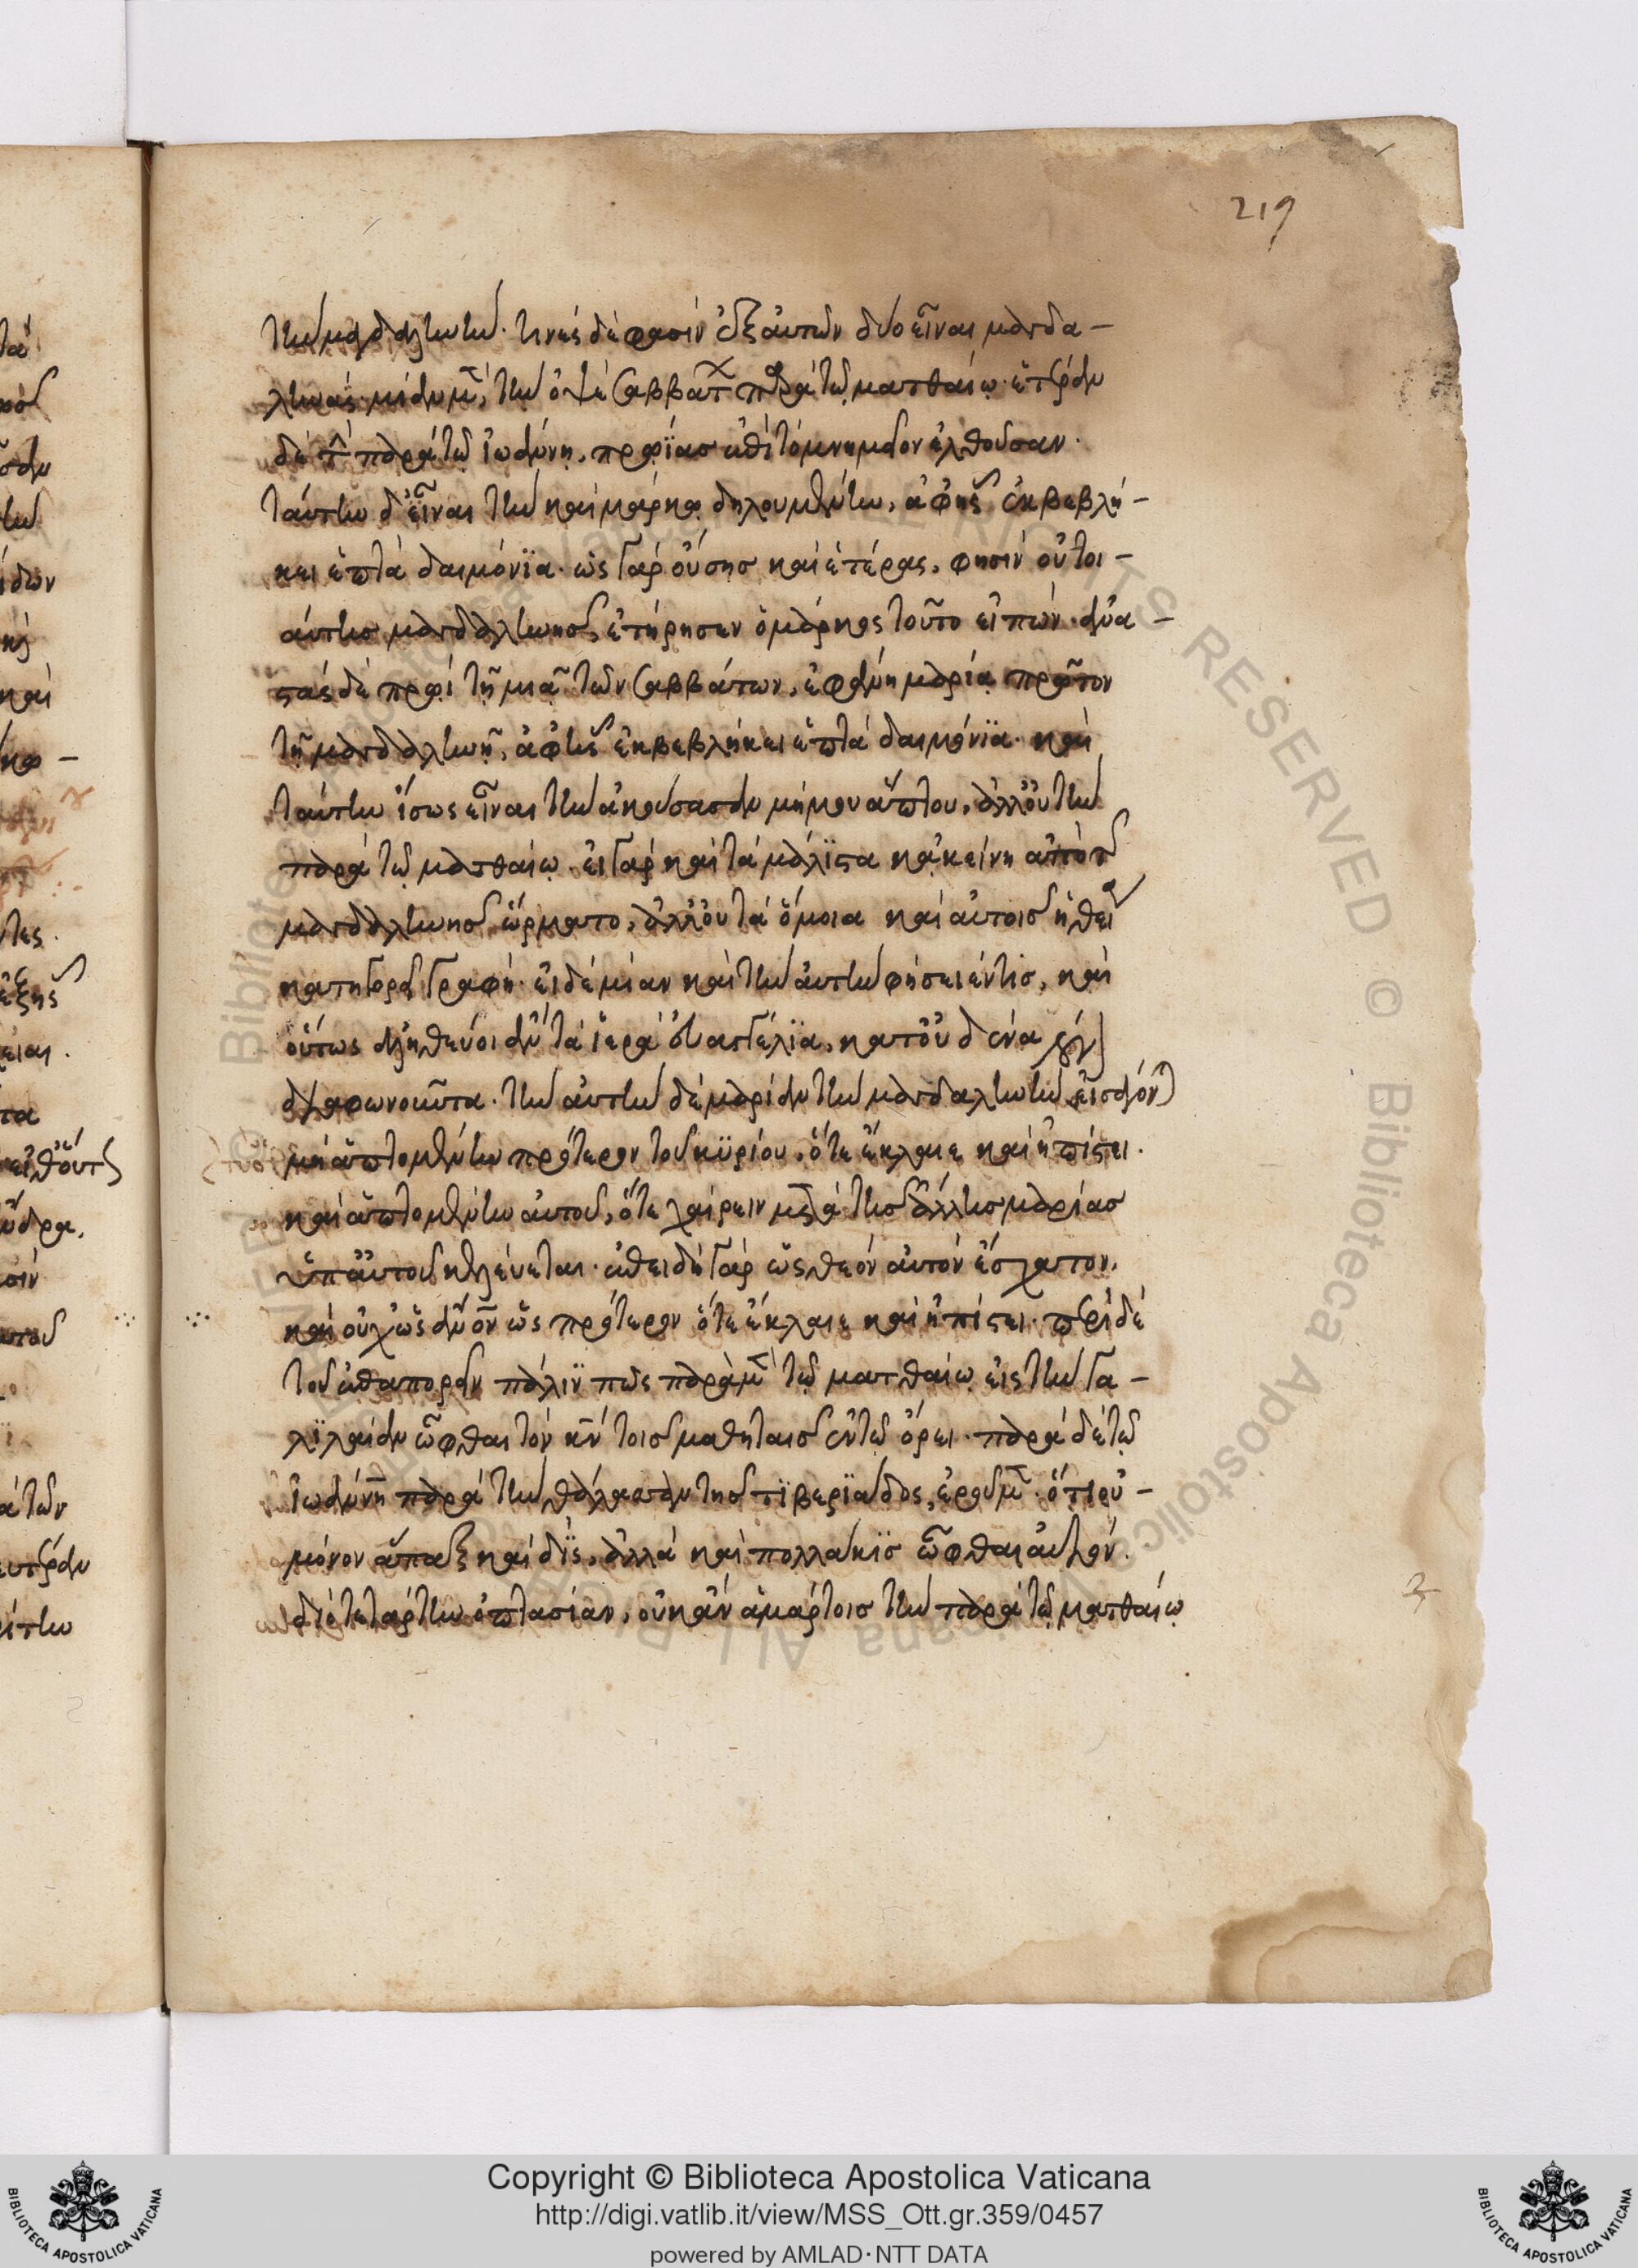 219
τὴν μαγδαληνήν. τινὲς δέ φασιν ἐξ αὐτῶν δύο εἶναι μαγδα-
ληνάς. μίαν μὲν, τὴν ὀψὲ σαββάτων παρὰ τῷ ματθαίῳ. ἑτέραν
δὲ τὴν παρὰ τῷ ἰωάννῃ, πρωΐας ἐπὶ τὸ μνημεῖον ἐλθοῦσαν.
ταύτην δ' εἶναι τὴν καὶ μάρκῳ δηλουμένην, ἀφ' ἧς ἐκβεβλή-
κει ἑπτὰ δαιμόνϊα. ὡς γὰρ οὔσης καὶ ἑτέρας, φησὶν οὗτοι-
αύτης μαγδαληνῆς ἐτήρησεν ὁ μάρκος τοῦτο εἰπών. ἀνα-
στὰς δὲ πρωῒ τῇ μιᾷ τῶν σαββάτων, ἐφάνη μαρίᾳ πρῶτον
τῇ μαγδαληνῇ, ἀφ' ἧς ἐκβεβλήκει ἑπτὰ δαιμόνϊα. καὶ
ταύτην ἴσως εἶναι τὴν ἀκούσασαν μή μου ἅπτου, ἀλλ' οὐ τὴν
παρὰ τῷ ματθαίῳ. εἰ γὰρ καὶ τὰ μάλϊστα κἀκείνη ἀπὸ
μαγδαληνῆς ὥρματο, ἀλλ' οὐ τὰ ὅμοια καὶ αὐτοῖς ἡ θεία
κατηγορεῖ γραφή. εἰ δὲ μίαν καὶ τὴν αὐτὴν φήσειέν τις, καὶ
οὕτως ἀληθεύοι ἂν τὰ ἱερὰ εὐαγγέλϊα, κατ' οὐδένα
διαφωνοῦντα. τὴν αὐτὴν δὲ μαρίαν τὴν μαγδαληνὴν
μὴ ἁπτομένην πρότερον τοῦ κυρίου, ὅτε ἔκλαιε καὶ ἠπίστει.
καὶ ἁπτομένην αὐτοῦ, ὅτε χαίρειν μετὰ τῆς ἄλλης μαρίας
ὑπ' αὐτοῦ κελεύεται. ἐπειδὴ γὰρ ὡς θεὸν αὐτὸν ἔσχατον,
καὶ οὐχ ὡς ἄνον ὡς πρότερον ὅτε ἔκλαιε καὶ ἠπίστει. περὶ δὲ
τοῦ ἐπαπορεῖν πάλιν πῶς παρὰ μὲν τῷ ματθαίῳ εἰς τὴν γα-
λιλαίαν ὦφθαι τὸν κν τοῖς μαθηταῖς ἐν τῷ ὄρει. παρὰ δὲ τῷ
ἰωάννῃ παρὰ τὴν θάλασσαν τῆς τϊβερϊάδος, ἐροῦμεν. ὅτι οὐ-
μόνον ἅπαξ καὶ δὶς, ἀλλὰ καὶ πολλάκϊς ὦφθαι αὐτόν.
διὸ τετάρτην ὀπτασίαν, οὐκ ἂν ἁμάρτοις τὴν παρὰ τῷ ματθαίῳ
Copyright © Biblioteca Apostolica Vaticana
http://digi.vatlib.it/view/MSS_Ott.gr.359/0457
powered by AMLAD·NTT DATA
BIBLIOTECA APOSTOLICA VATICANA
BIBLIOTECA APOSTOLICA VATICANA